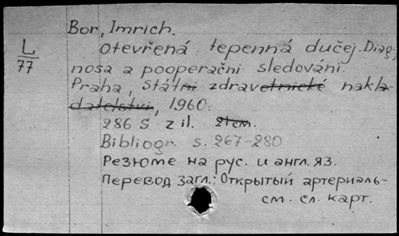 Bor, Imrich.
L
77
Otevřená tepenná dučej. Diag,
nosa a pooperační sledování.
Praha, Státní zdravotnické nakla-
datelství, 1960.
286 S z il. 21 cm.
Bibliogr s. 267-280
Резюме на рус. и англ. яз.
Перевод загл.: Открытый артериаль-
см. сл. карт.